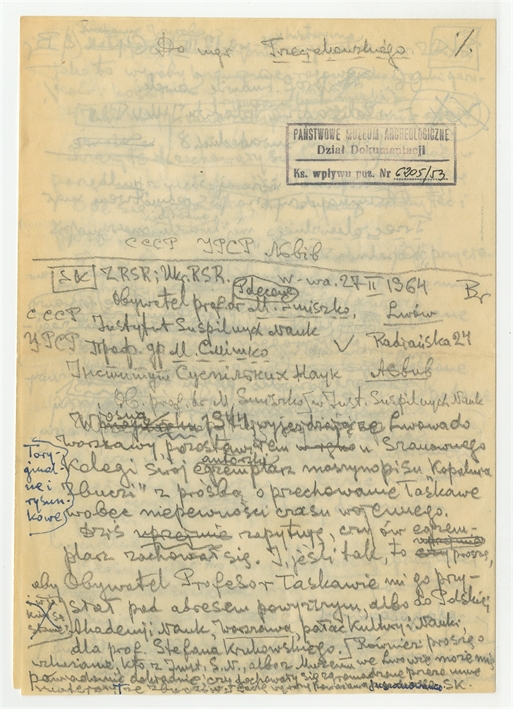 Do mgr Trzeciakowskiego 1/.
PAŃSTWOWE MUZEUM ARCHEOLOGICZNE
Dział Dokumentacji
Ks. wpływu poz. Nr 6205/53
СССР УРСР Львів
SK ZRSR; Ukr.RSR. Polecony W-wa. 27 II 1964 Br
Obywatel prof. dr M. Śmiszko, Lwów
СССР Instytut Suspilnych Nauk Radiańska 24
УРСР Проф. др М. Смішко
Інститут Суспільних Наук Львів
Ob. prof. dr M. Śmiszko w Inst. Suspilnych Nauk
W wiosną 1944, wyjeżdżając ze Lwowa do
Warszawy, pozostawiłem u Szanownego
Kolegi swój autorski egzemplarz maszynopisu "Kopalnia
/oryginalnie i rysunkowe/
Zbuczi" z prośbą o przechowanie łaskawe
wobec niepewności czasu wojennego.
Dziś uprzejmie zapytuję, czy ów egzem-
plarz zachował się. I jeśli tak, to proszę,
aby Obywatel Profesor łaskawie mi go przy-
słał pod adresem powyższym, albo do Polskiej
Akademii Nauk, Warszawa, pałac Kultury i Nauki,
dla prof. Stefana Krukowskiego. Również proszę o
kto z Inst. S.N. albo z Muzeum we Lwowie może mię
powiadomić dokładnie, czy dochowały się zgromadzone przeze mnie
materiały SK.